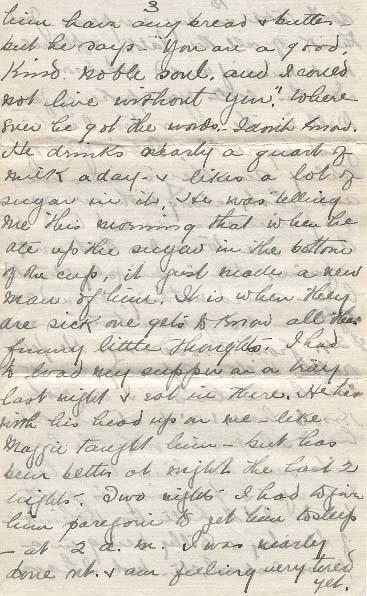 3
him have any bread & butter
but he says "You are a good,
kind noble soul, and I could
not live without you." Where
ever he got the words - I don't know.
He drinks nearly a quart of
milk a day - & likes a lot of
sugar in it. He was telling
me this morning that when he
ate up the sugar in the bottom
of the cup, it just made a new
man of him. It is when they
are sick one gets to know all their
funny little thoughts - I had
to load my supper on a tray
last night & eat in there. He lies
with his head up on me - like
Maggie taught him - but has
been better at night the last 2
nights. Two nights I had to give
him paregoric to get him to sleep
- at 2 a.m. I was nearly
done out. & am feeling very tired
yet.